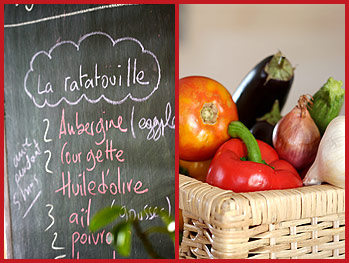 La ratatouille
2 Aubergine (eggpl
2 Courgette
Huile d'olive
3 ail (gousses)
2 poivro